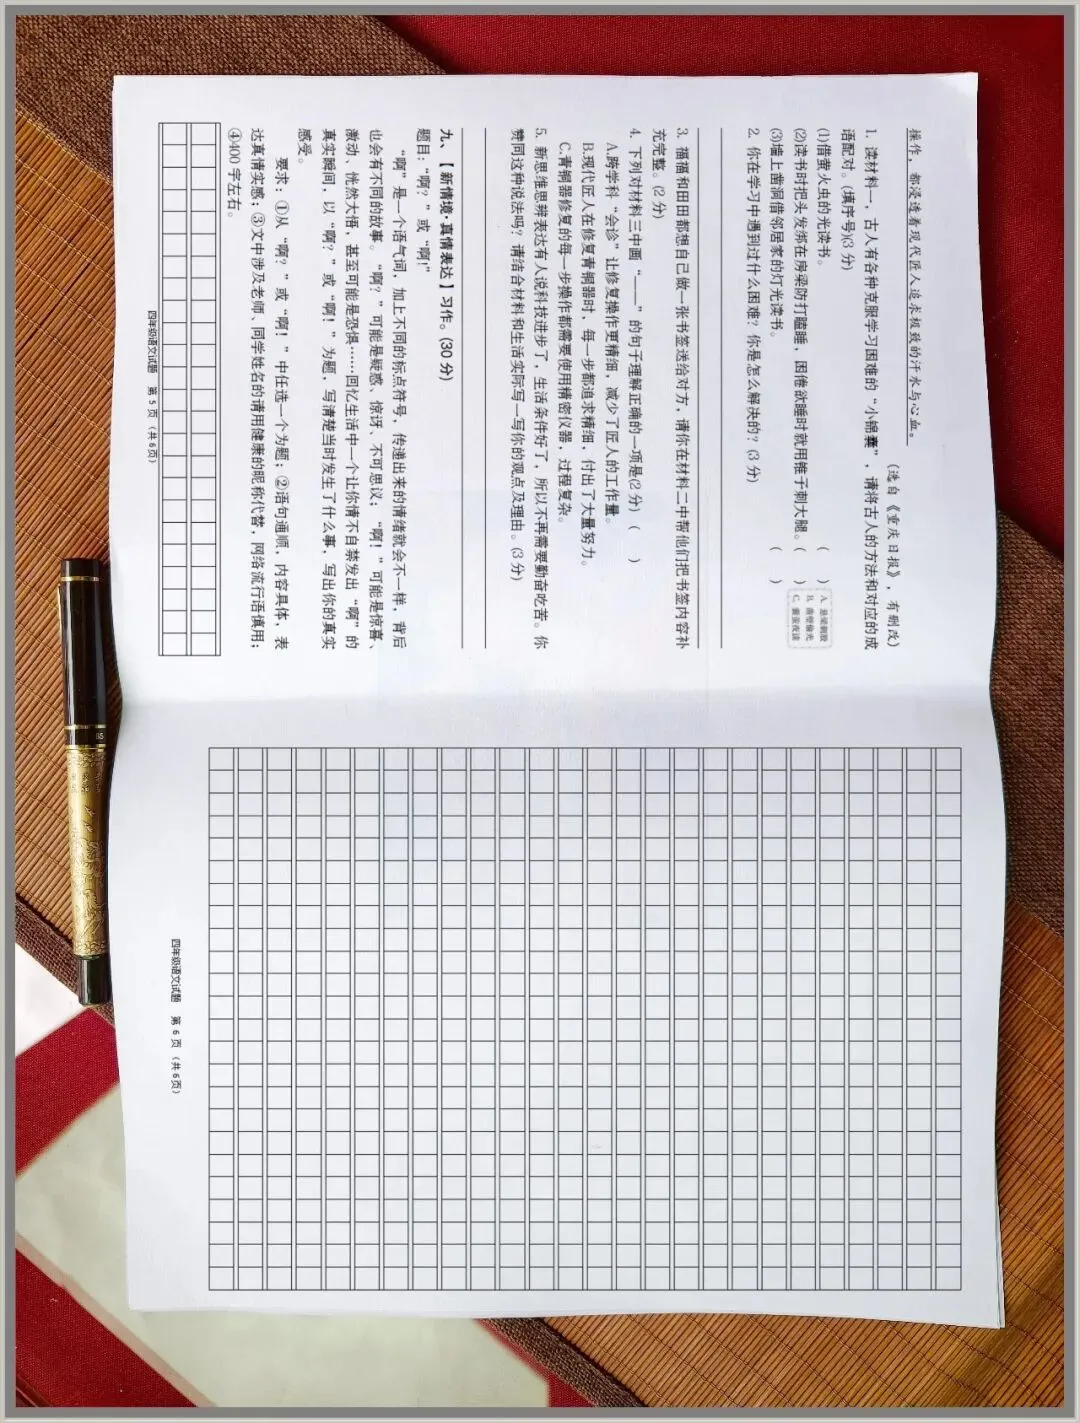 操作，都浸透着现代匠人追求极致的汗水与心血。
（选自《重庆日报》，有删改）
1. 读材料一，古人有各种克服学习困难的“小锦囊”，请将古人的方法和对应的成
语配对。(填序号)(3 分)
(1)借萤火虫的光读书。 （ ）
(2)读书时把头发绑在房梁防打瞌睡，困倦欲睡时就用锥子刺大腿。（ ）
(3)墙上凿洞借邻居家的灯光读书。 （ ）
A. 悬梁刺股
B. 凿壁偷光
C. 囊萤夜读
2. 你在学习中遇到过什么困难？你是怎么解决的？(3 分)
3. 福福和田田都想自己做一张书签送给对方，请你在材料二中帮他们把书签内容补
充完整。(2 分)
4. 下列对材料三中画“——”的句子理解正确的一项是(2 分)（ ）
A.跨学科“会诊”让修复操作更精细，减少了匠人的工作量。
B.现代匠人在修复青铜器时，每一步都追求精细，付出了大量努力。
C.青铜器修复的每一步操作都需要使用精密仪器，过程复杂。
5. 新思维思辨表达有人说科技进步了，生活条件好了，所以不再需要勤奋吃苦。你
赞同这种说法吗？请结合材料和生活实际写一写你的观点及理由。(3 分)
九、【新情境·真情表达】习作。(30 分)
题目：“啊？”或“啊!”
“啊”是一个语气词，加上不同的标点符号，传递出来的情绪就会不一样，背后
也会有不同的故事。“啊？”可能是疑惑、惊讶、不可思议；“啊！”可能是惊喜、
激动、恍然大悟，甚至可能是恐惧……回忆生活中一个让你情不自禁发出“啊”的
真实瞬间，以“啊？”或“啊！”为题，写清楚当时发生了什么事，写出你的真实
感受。
要求：①从“啊？”或“啊！”中任选一个为题；②语句通顺，内容具体，表
达真情实感；③文中涉及老师、同学姓名的请用健康的昵称代替，网络流行语慎用；
④400 字左右。
四年级语文试题 第 5 页（共 6 页）
四年级语文试题 第 6 页（共 6 页）